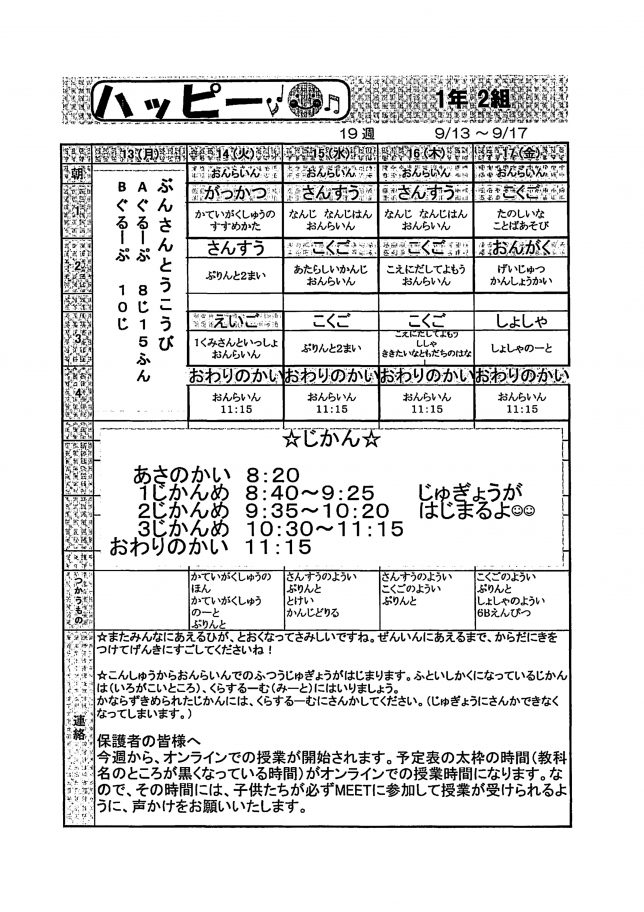 ハッピー♪♫
1年 2組
19週 9/13 ～9/17
13(月) 14(火) 15(水) 16(木) 17(金)
朝 おんらいん おんらいん おんらいん おんらいん
ぶんさんとうこうび
Aぐるーぷ 8じ15ふん
Bぐるーぷ 10じ
がっかつ さんすう さんすう こくご
1
かていがくしゅうの なんじ なんじはん なんじ なんじはん たのしいな
すすめかた おんらいん おんらいん ことばあそび
さんすう こくご こくご おんがく
2
ぷりんと2まい あたらしいかんじ こえにだしてよもう げいじゅつ
おんらいん おんらいん かんしょうかい
えいご こくご こくご しょしゃ
3
1くみさんといっしょ ぷりんと2まい こえにだしてよもう しょしゃのーと
おんらいん ししゃ
ききたいなともだちのはな
おわりのかい おわりのかい おわりのかい おわりのかい
4
おんらいん おんらいん おんらいん おんらいん
11:15 11:15 11:15 11:15
☆じかん☆
あさのかい 8:20
1じかんめ 8:40～9:25 じゅぎょうが
2じかんめ 9:35～10:20 はじまるよ☺☺
3じかんめ 10:30～11:15
おわりのかい 11:15
つかうもの
かていがくしゅうの さんすうのようい さんすうのようい こくごのようい
ほん ぷりんと こくごのようい ぷりんと
かていがくしゅう とけい ぷりんと しょしゃのようい
のーと かんじどりる 6Bえんぴつ
ぷりんと
連絡
☆またみんなにあえるひが、とおくなってさみしいですね。ぜんいんにあえるまで、からだにきを
つけてげんきにすごしてくださいね！
☆こんしゅうからおんらいんでのふつうじゅぎょうがはじまります。ふといしかくになっているじかん
は(いろがこいところ)、くらするーむ(みーと)にはいりましょう。
かならずきめられたじかんには、くらするーむにさんかしてください。(じゅぎょうにさんかできなく
なってしまいます。)
保護者の皆様へ
今週から、オンラインでの授業が開始されます。予定表の太枠の時間(教科
名のところが黒くなっている時間)がオンラインでの授業時間になります。な
ので、その時間には、子供たちが必ずMEETに参加して授業が受けられるよ
うに、声かけをお願いいたします。